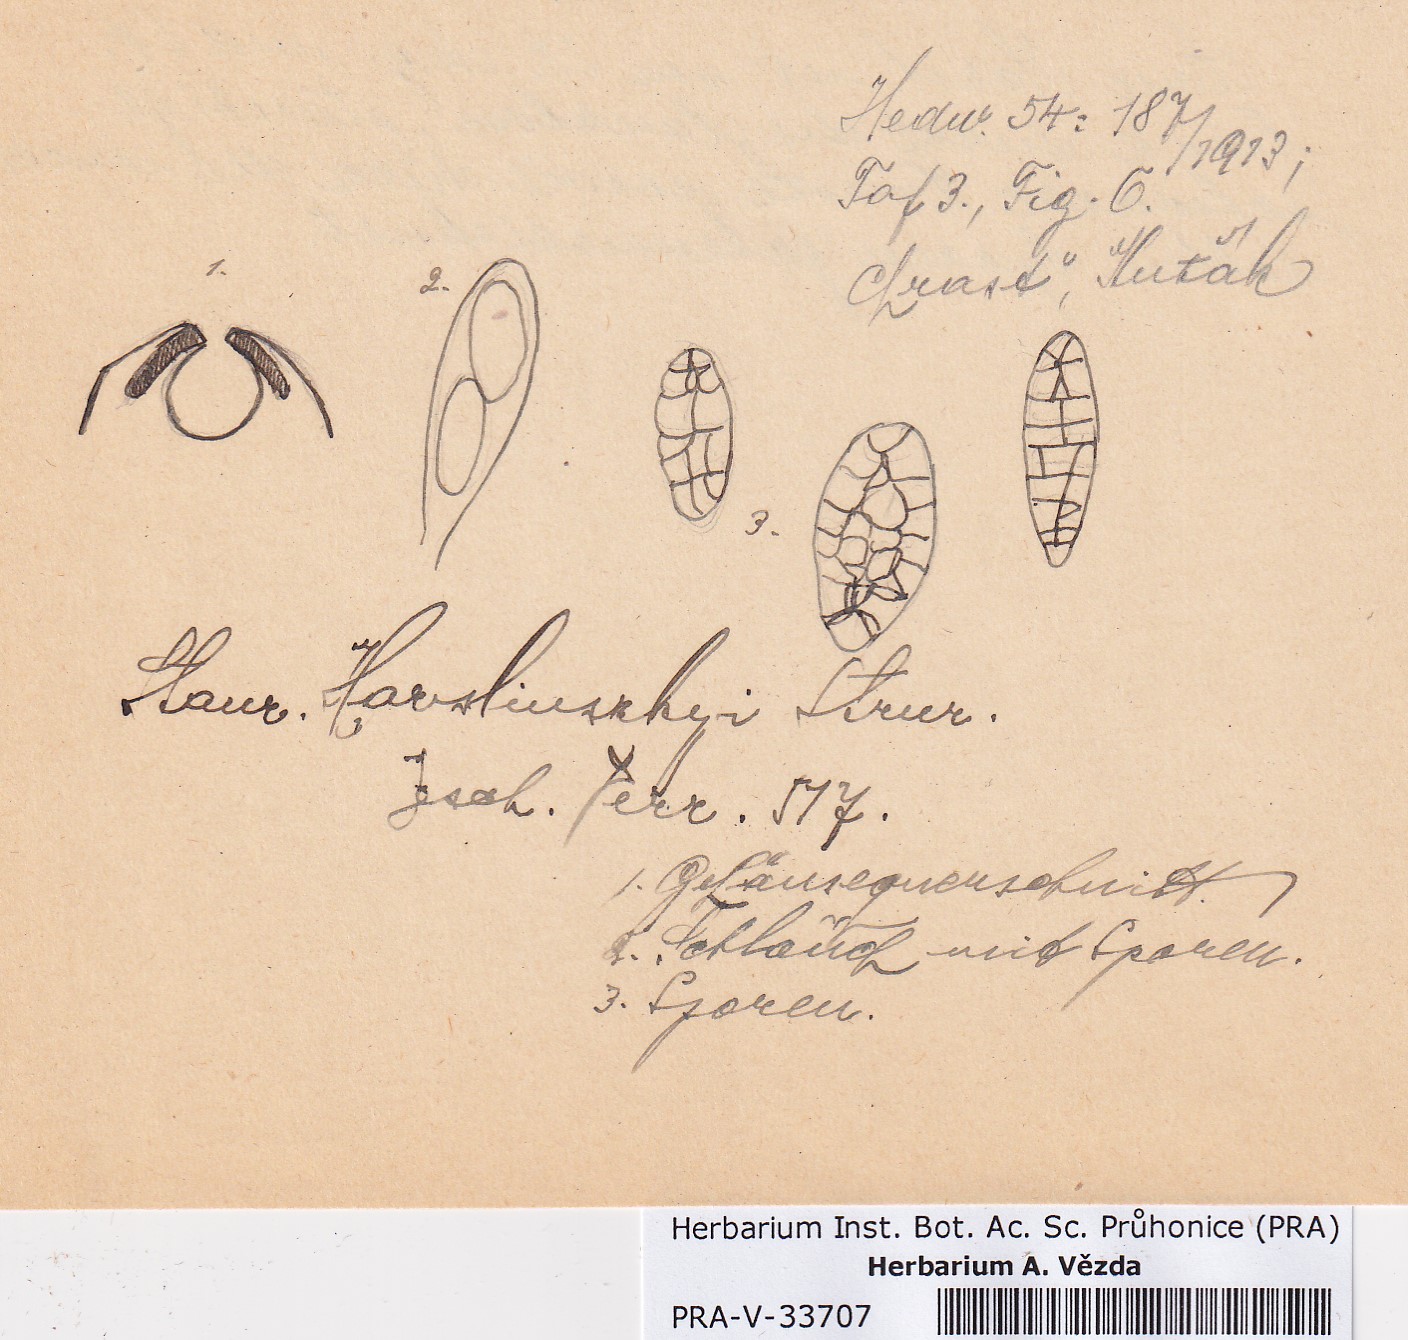 Hedw. 54: 187/1913;
Taf 3., Fig. 6.
1.
2.
3.
Staur. Hazslinszkyi
1. Gehäusequerschnitt.
2. Schlauch mit Sporen.
3. Sporen.
Herbarium Inst. Bot. Ac. Sc. Průhonice (PRA)
Herbarium A. Vězda
PRA-V-33707